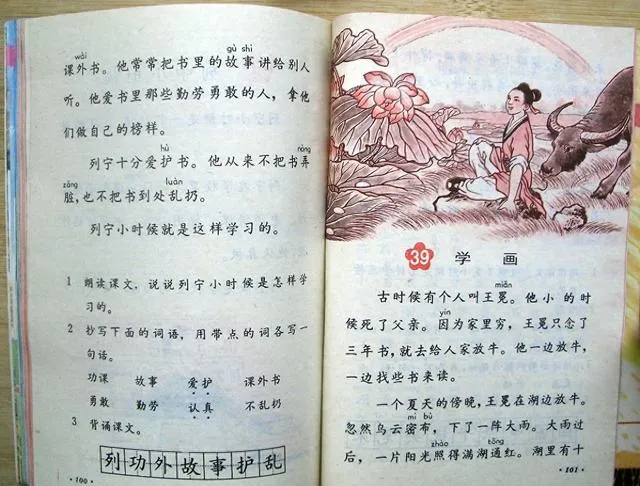 wài gù shi
课外书。他常常把书里的故事讲给别人
听。他爱书里那些勤劳勇敢的人，拿他
们做自己的榜样。
hù nòng
列宁十分爱护书。他从来不把书弄
zāng luàn
脏，也不把书到处乱扔。
列宁小时候就是这样学习的。
1 朗读课文，说说列宁小时候是怎样学
习的。
2 抄写下面的词语，用带点的词各写一
句话。
功课 故事 爱护 课外书
勇敢 勤劳 认真 不乱扔
3 背诵课文。
列功外故事护乱
·100·
39 学画
miǎn
古时候有个人叫王冕。他小的时
yīn
候死了父亲。因为家里穷，王冕只念了
三年书，就去给人家放牛。他一边放牛，
一边找些书来读。
一个夏天的傍晚，王冕在湖边放牛。
mì bù
忽然乌云密布，下了一阵大雨。大雨过
zhào tōng
后，一片阳光照得满湖通红。湖里有十
·101·